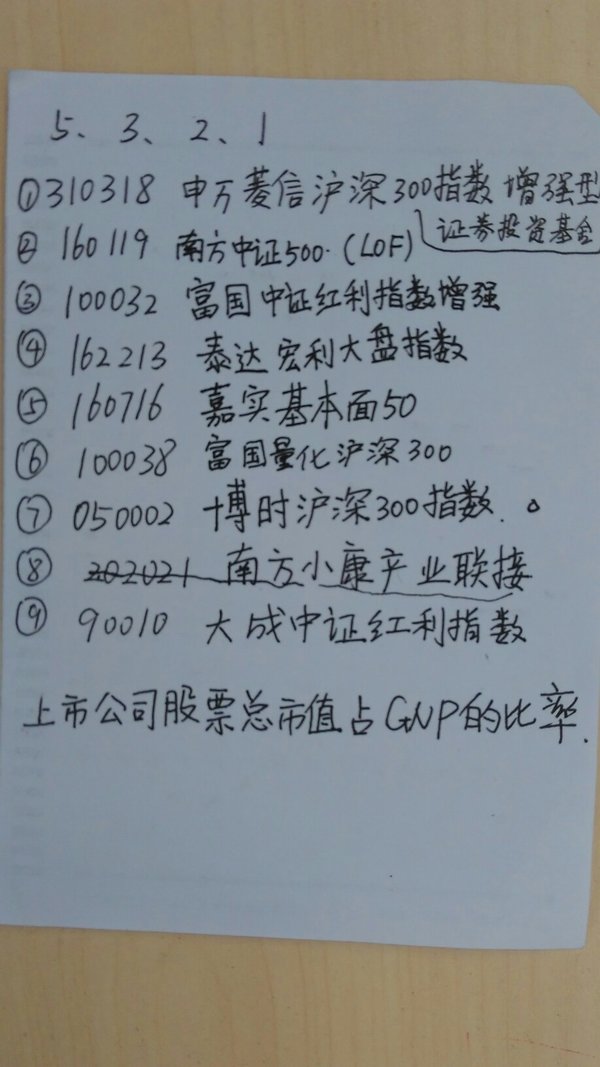 5、3、2、1
①310318 申万菱信沪深300指数增强型
证券投资基金
②160119 南方中证500.(LOF)
③100032 富国中证红利指数增强
④162213 泰达宏利大盘指数
⑤160716 嘉实基本面50
⑥100038 富国量化沪深300
⑦050002 博时沪深300指数.。
⑧202021 南方小康产业联接
⑨90010 大成中证红利指数
上市公司股票总市值占GNP的比率.